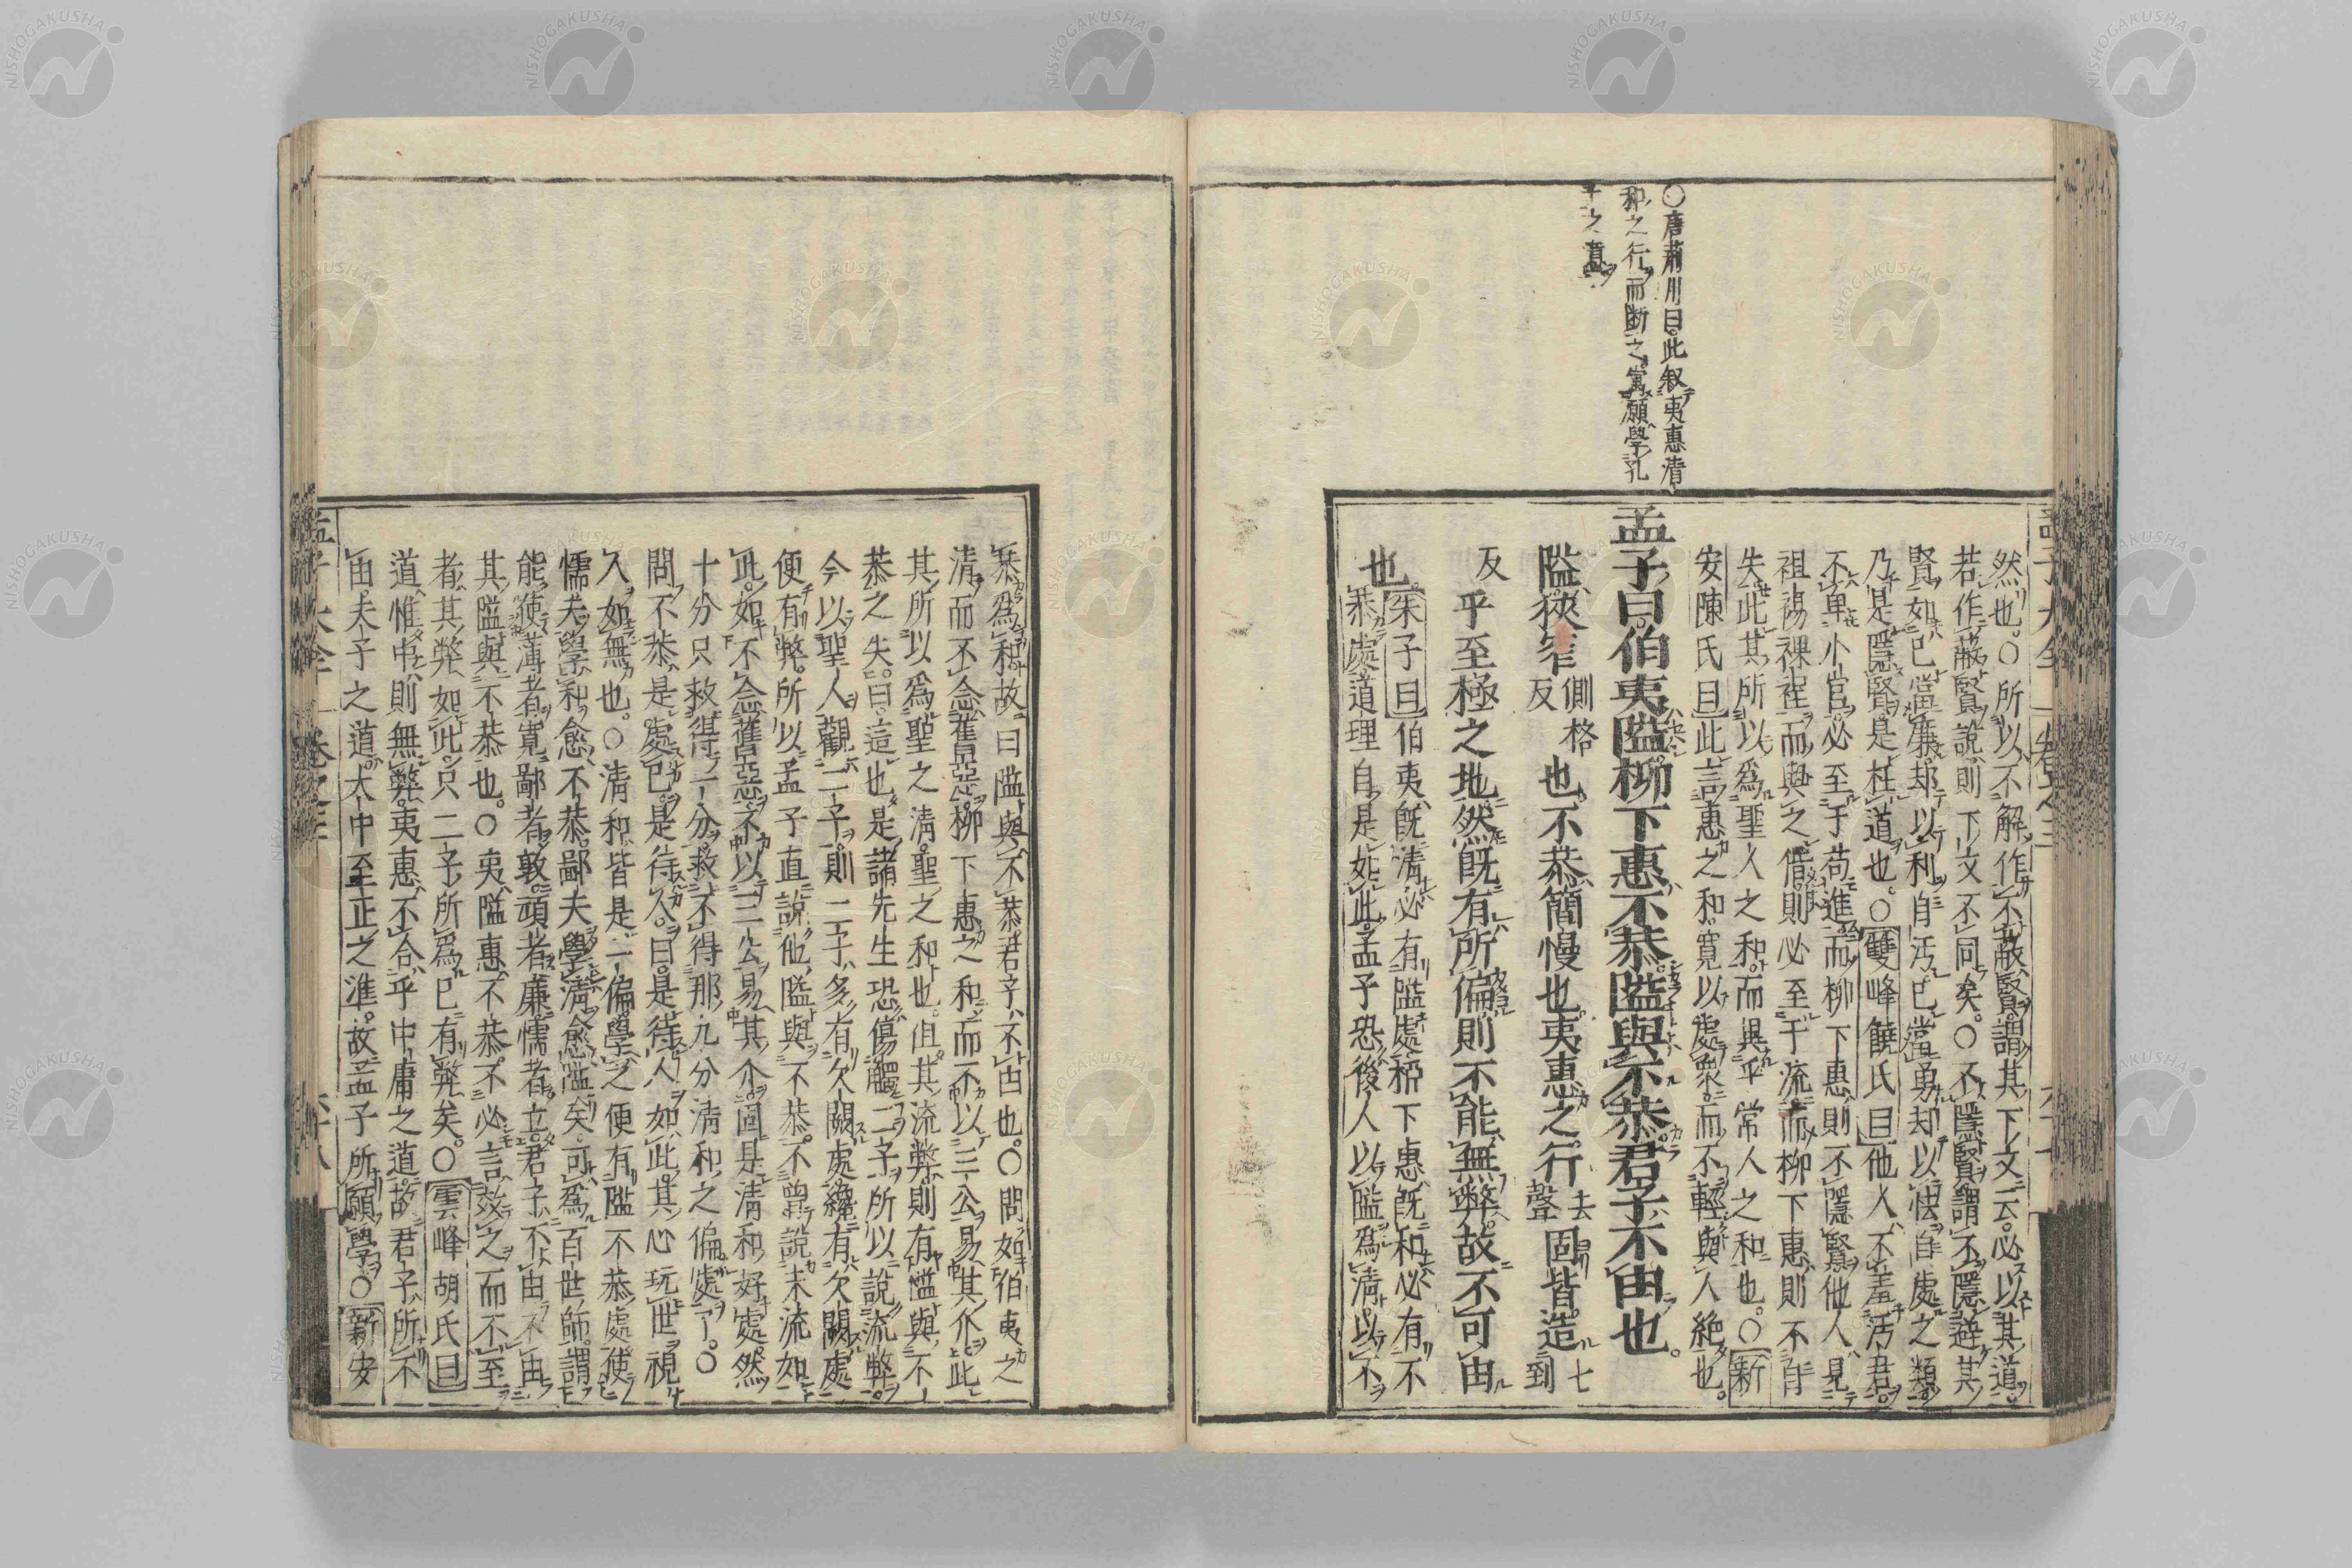 ○唐荊川曰此叙夷惠清
和之行而斷之寓願學孔
子之意
然也○所以不解作不蔽賢謂其下文云必以其道
若作蔽賢說則下文不同矣○不隱賢謂不隱避其
賢如己當廉却以利自汚己當勇却以怯自處之類
乃是隱賢是枉道也○雙峰饒氏曰他人不羞汚君
不卑小官必至于苟進而柳下惠則不隱賢他人見
袒裼裸裎而與之偕則必至于流而柳下惠則不自
失此其所以爲聖人之和而異乎常人之和也○新
安陳氏曰此言惠之和寬以處衆而不輕與人絶也
孟子曰伯夷隘柳下惠不恭隘與不恭君子不由也
隘狹窄側格反也不恭簡慢也夷惠之行去聲固皆造七到
反乎至極之地然既有所偏則不能無弊故不可由
也朱子曰伯夷既清必有隘處柳下惠既和必有不
恭處道理自是如此孟子恐後人以隘爲清以不
恭爲和故曰隘與不恭君子不由也○問如伯夷之
清而不念舊惡柳下惠之和而不以三公易其介此
其所以爲聖之清聖之和也但其流弊則有隘與不
恭之失曰這也是諸先生恐傷觸二子所以說流弊
今以聖人觀二子則二子多有欠闕處纔有欠闕處
便有弊所以孟子直說他隘與不恭不曾說末流如
此如不念舊惡不以三公易其介固是清和好處然
十分只救得一分救不得那九分清和之偏處了○
問不恭是處己是待人曰是待人如此其心玩世視
人如無也○清和皆是一偏學之便有隘不恭處使
懦夫學和愈不恭鄙夫學清愈隘矣可爲百世師謂
能使薄者寬鄙者敦頑者廉懦者立君子不由不由
其隘與不恭也○夷隘惠不恭不必言效之而不至
者其弊如此只二子所爲已有弊矣○雲峰胡氏曰
道惟中則無弊夷惠不合乎中庸之道故君子所不
由夫子之道大中至正之準故孟子所願學○新安
孟子大全 卷之三